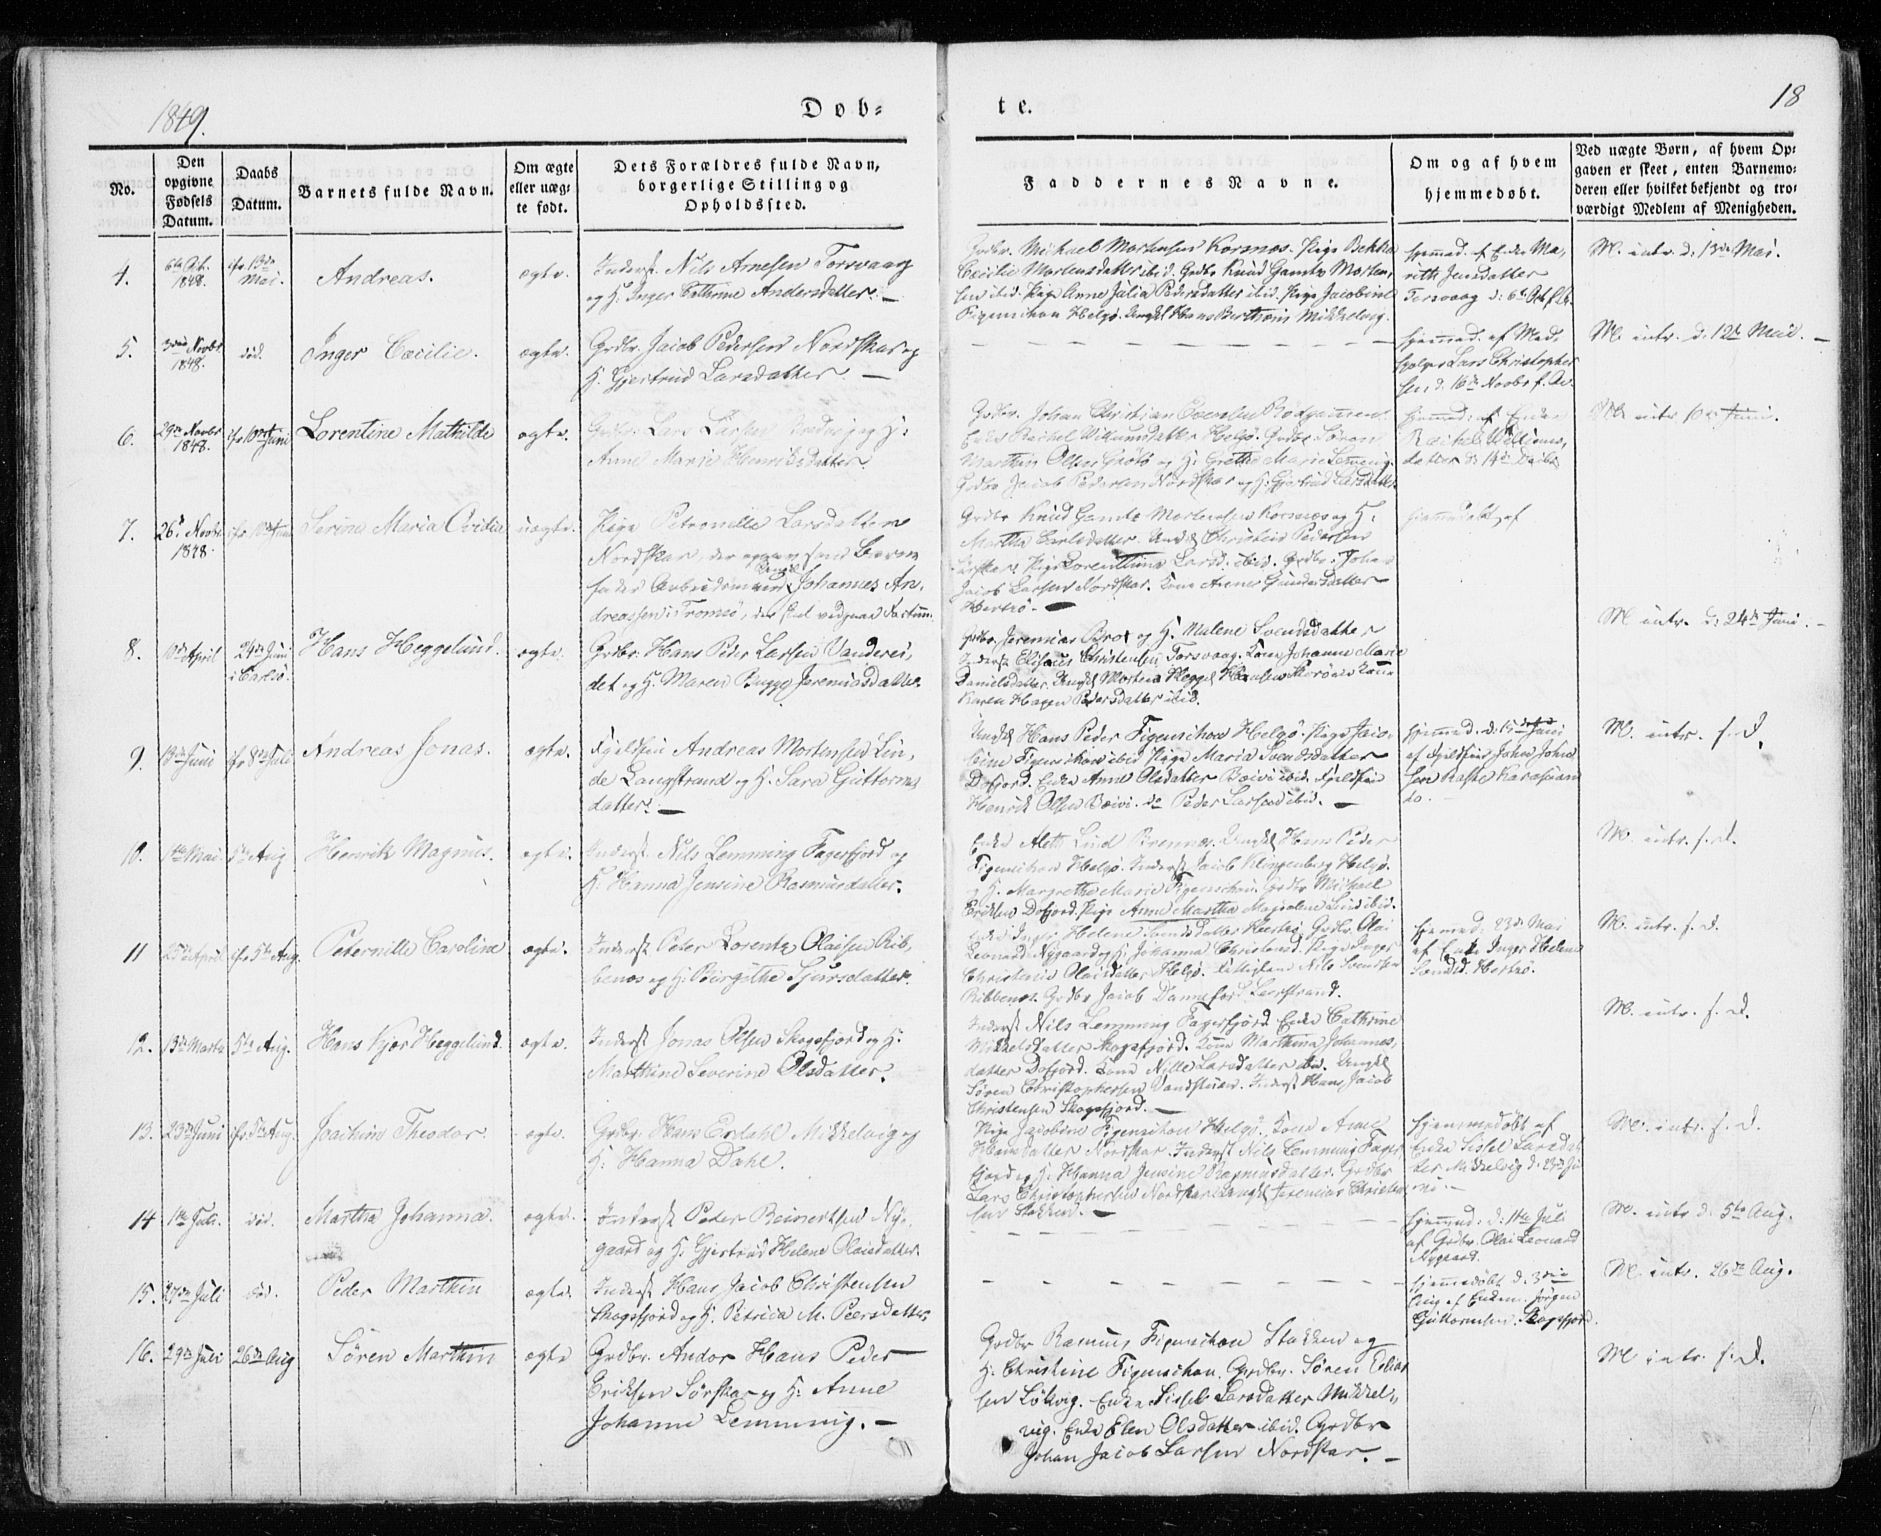 1849.
Dob=
te.
18
No.
Den opgivne Fødsels Datum.
Daabs Datum.
Barnets fulde Navn.
Om ægte eller uæg= te født.
Dets Forældres fulde Navn, borgerlige Stilling og Opholdssted.
Faddernes Navne.
Om og af hvem hjemmedøbt.
Ved uægte Børn, af hvem Op= gaven er skeet, enten Barnemo= deren eller hvilket bekjendt og tro= værdigt Medlem af Menigheden.
4.
6te Oct. 1848.
13de Mai.
Andreas.
ægte.
Inderst. Nils Arnesen Torsvaag
og H. Inger Cathrine Andersdatter. —
Grdbr. Michael Mortensen Kornæs. Pige
Cecilie Mortensdatter ibid. Grdbr Knud Gamts Morten,
sen ibid. Pige Anne Julia Pedersdatter ibid. Pige Jacobine
Figenschou Helgø. Ungkl Hans Bertheus Mikkelvig.
hjemmed. af Enke Ma,
rith Jensdatter
Torsvaag d. 6te Oct. f. A.
M. intr. d. 13de Mai.
5.
3die Novbr 1848.
død.
Inger Cæcilie.
ægte.
Grdbr. Jacob Pedersen Nordskar og
H. Gjertrud Larsdatter. —
hjemmed. af Med,
hjelper Lars Christopher
sen d. 16de Novbr. f. A.
M. intr. d. 12te Mai. —
6.
29de Novbr 1848.
10de Juni
Lorentine Mathilde
ægte.
Grdbr. Lars Larsen og H.
Anne Marie Henriksdatter.
Grdbr. Johan Christian
Enke Rachel Willumsdatter Helgø. Grdbr Søren
Marthin Olsen Grøtø og H. Grethe Marie Lemming.
Grdbr Jacob Pedersen Nordskar og H. Gjertrud Larsdatter
hjemmed. af Enke
Rachel Willums,
datter d. 14de Decbr
M. intr. 10de Juni.
7.
26de Novbr 1848.
10de Juni
Serine Maria Cecilia
uægte.
Pige Petronelle Larsdatter
Nordskar, der opgav som Barne
fader Arbeidsmand Ungkl Johannes An,
dreassen i Tromsø, der skal vedgaae Factum.
Grdbr Knud Gamts Mortensen Kornæs og H.
Martha Carlsdatter. Ungkl Christen Pedersen
Sørskar. Pige Lorenthine Larsd. ibid. Grdbr. Johan
Jacob Larsen Nordskar. Kone Anne Gundersdatter
Hertø. —
hjemmedøbt af
8.
10de April
24de Juni i Carlsø.
Hans Heggelund.
ægte.
Grdbr. Hans Peder Larsen Vanderei,
det og H. Maren Bugge Jeremiasdatter.
Grdbr. Jeremias Brox og H. Malene Svendsdatter
Inderst Eliseus Christensen Torsvaag. Kone Johanne Marie
Danielsdatter. Ungkl Morten Hegge Hansen Skorøen. Kone
Karen Hagen Pedersdatter ibid.
M. intr. d. 24de Juni. —
9.
13de Juni
8de Juli
Andreas Jonas.
ægte.
Fjeldfin Andreas Mortensen Lin,
de Langstrand og H. Sara Guttorms
datter. —
Ungkl Hans Peder Figenschou Helgø. Pige Jaco,
bine Figenschou ibid. Pige Maria Svendsdatter
Dofjord. Enke Anne Olsdatter Bæivi ibid. Fjeldfin
Henrik Olsen Bæivi. do Peder Larsen ibid. —
hjemmed. d. 15de Juni
af Fjeldfin John John,
sen Karasuan
do. —
M. intr. s. D.
10.
1ste Mai.
5te Aug
Henrik Magnus.
ægte.
Inderst. Nils Lemming Fagerfjord og
H. Hanna Jensine Rasmusdatter.
Enke Aleth Lind Brennæs. Ungkl Hans Peder
Figenschou Helgø. Inderst Jacob Klingenberg Helgø.
og H. Margrethe Marie Figenschou. Grdbr Michael
Eriksen Dofjord. Pige Anne Martha Magdalene Lind ibid.
M. intr. s. D.
11
25de April
5te Aug.
Peternille Caroline
ægte.
Inderst Peter Lorentz Olaisen Rib,
benæs og H. Birgithe Sjursdatter.
Enke Inger Helene Hertø. Grdbr. Olai
Leonard Nygaard og H. Johanna Christensd. Pige Inger
Christence Olaisdatter Helgø. Nils Svendsen
Ribbenæs. Grdbr Jacob Dannefjord Leirstrand.
hjemmed. 23de Mai
af Enke Inger Helene
Hertø.
M. intr. s. D.
12.
13de Marts
5te Aug.
Hans Kjær Heggelund.
ægte.
Inderst Jonas Olsen Skogsfjord og H.
Marthine Severine Olsdatter.
Inderst Nils Lemming Fagerfjord. Enke Cathrine
Mikkelsdatter Skogsfjord. Kone Marthina Johannes,
datter Dofjord. Kone Nille Larsdatter ibid. Ungkl
Søren Christophersen Vandstuen. Inderst Hans Jacob
Christensen Skogsfjord. —
M. intr. s. D.
13.
23de Juni
5te Aug.
Joachim Theodor.
ægte.
Grdbr. Hans Erdahl Mikkelvig og
H. Hanna Dahl.
Pige Jacobine Figenschou Helgø. Kone Anne
Hansdatter Nordskar. Inderst Nils Lemming Fager
fjord og H. Hanna Jensine Rasmusdatter. Grdbr
Lars Christophersen Nordskar. Ungkl Jeremias Christen
sen Stakken. —
hjemmedøbt af
Enke Sissel Larsdat
ter Mikkelvig d. 23de Ju
ni. —
M. intr. s. D.
14
1ste Juli.
død.
Martha Johanna.
ægte.
Inderst Peder Beinertsen Ny,
gaard og H. Gjertrud Helene Olaisdatter.
hjemmed. d. 11te Juli
af Grdbr. Olai Leonard
Nygaard.
M. intr. d. 5te Aug.
15.
27de Juli
død.
Peder Marthin
ægte.
Inderst Hans Jacob Christensen
Skogsfjord og H. Petrica M. Peersdatter.
hjemmedøbt d. 3die
Aug af Enkem. Jørgen
Guttormsen Skogsfjord.
M. intr. 26de Aug.
16.
29de Juli
26de Aug
Søren Marthin
ægte
Grdbr. Andor Hans Peder
Eriksen Sørskar og H. Anne
Johanne Lemming. —
Grdbr Rasmus Figenschou Stakken og
H. Christine Figenschou. Grdbr. Søren Elias
sen Løkvig. Enke Sissel Larsdatter Mikkel,
vig. Enke Elen Olsdatter ibid. Grdbr
Johan Jacob Larsen Nordskar. —
M intr. s. D.